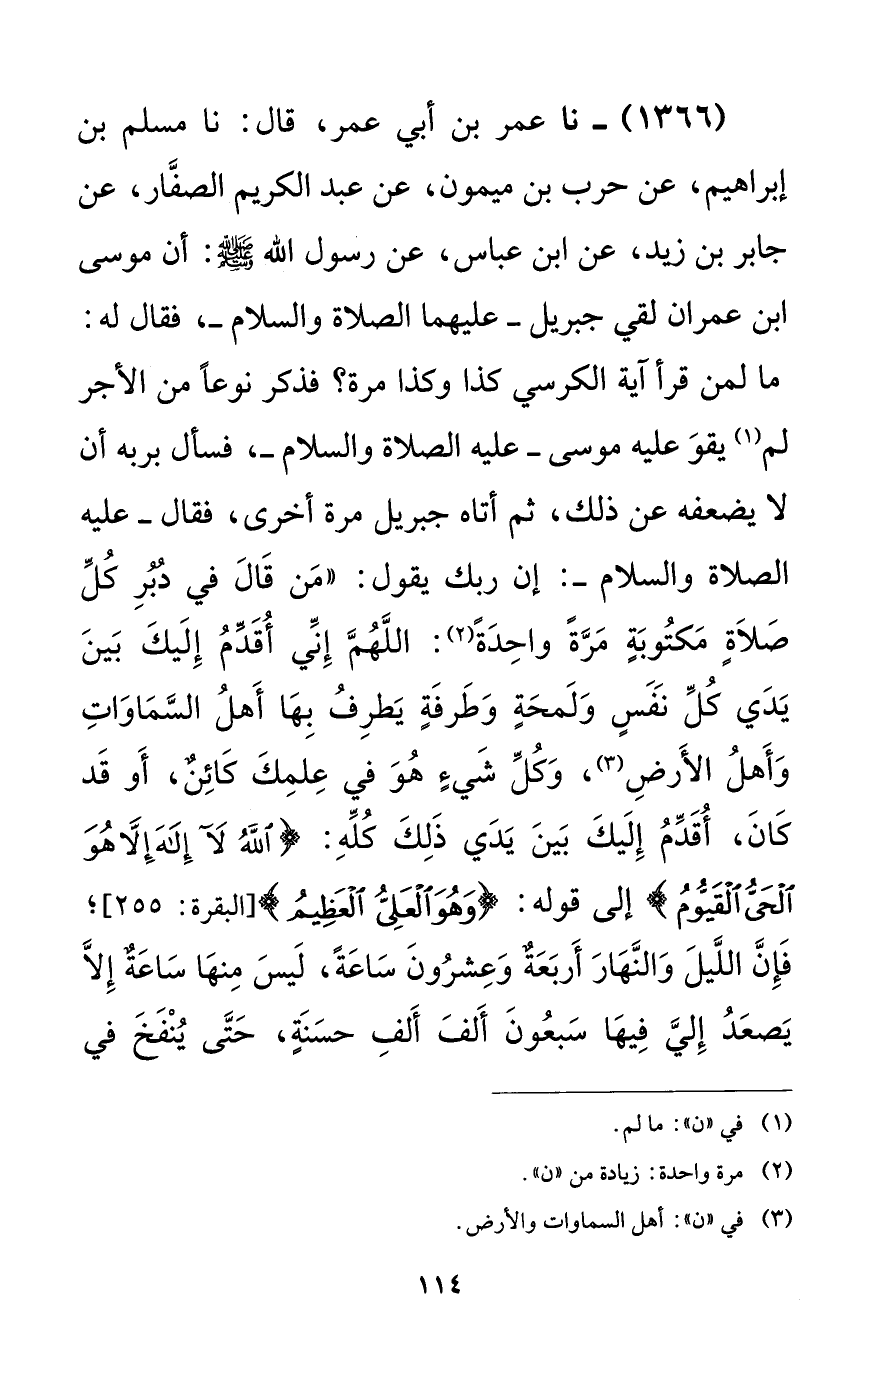 (١٣٦٦) ـ نا عمر بن أبي عمر، قال: نا مسلم بن
إبراهيم، عن حرب بن ميمون، عن عبد الكريم الصفَّار، عن
جابر بن زيد، عن ابن عباس، عن رسول الله ﷺ: أن موسى
ابن عمران لقي جبريل ـ عليهما الصلاة والسلام ـ، فقال له:
ما لمن قرأ آية الكرسي كذا وكذا مرة؟ فذكر نوعاً من الأجر
لم(١) يقوَ عليه موسى ـ عليه الصلاة والسلام ـ، فسأل بربه أن
لا يضعفه عن ذلك، ثم أتاه جبريل مرة أخرى، فقال ـ عليه
الصلاة والسلام ـ: إن ربك يقول: «مَن قَالَ في دُبُرِ كُلِّ
صَلاَةٍ مَكتُوبَةٍ مَرَّةً واحِدَةً(٢): اللَّهُمَّ إِنِّي أُقَدِّمُ إِلَيكَ بَينَ
يَدَي كُلِّ نَفَسٍ وَلَمحَةٍ وَطَرفَةٍ يَطرِفُ بِهَا أَهلُ السَّمَاوَاتِ
وَأَهلُ الأَرضِ(٣)، وَكُلِّ شَيءٍ هُوَ في عِلمِكَ كَائِنٌ، أَو قَد
كَانَ، أُقَدِّمُ إِلَيكَ بَينَ يَدَي ذَلِكَ كُلِّهِ: ﴿ٱللَّهُ لَآ إِلَٰهَ إِلَّا هُوَ
ٱلْحَيُّ ٱلْقَيُّومُ﴾ إلى قوله: ﴿وَهُوَ ٱلْعَلِيُّ ٱلْعَظِيمُ﴾[البقرة: ٢٥٥]؛
فَإِنَّ اللَّيلَ وَالنَّهَارَ أَربَعَةٌ وَعِشرُونَ سَاعَةً، لَيسَ مِنهَا سَاعَةٌ إِلاَّ
يَصعَدُ إِلَيَّ فِيهَا سَبعُونَ أَلفَ أَلفِ حسَنَةٍ، حَتَّى يُنْفَخَ في
(١) في «ن»: ما لم.
(٢) مرة واحدة: زيادة من «ن».
(٣) في «ن»: أهل السماوات والأرض.
١١٤